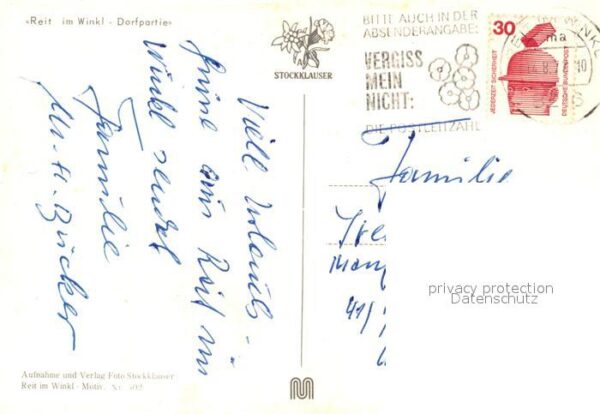 «Reit im Winkl - Dorfpartie»
STOCKKLAUSER
BITTE AUCH IN DER
ABSENDERANGABE:
VERGISS
MEIN
NICHT:
DIE POSTLEITZAHL
30
JEDERZEIT SICHERHEIT
DEUTSCHE BUNDESPOST
Viele Urlaubs-
grüße aus Reit im
Winkl sendet
Familie
Familie
privacy protection
Datenschutz
41/
Aufnahme und Verlag Foto Stockklauser
Reit im Winkl - Motiv. Nr.